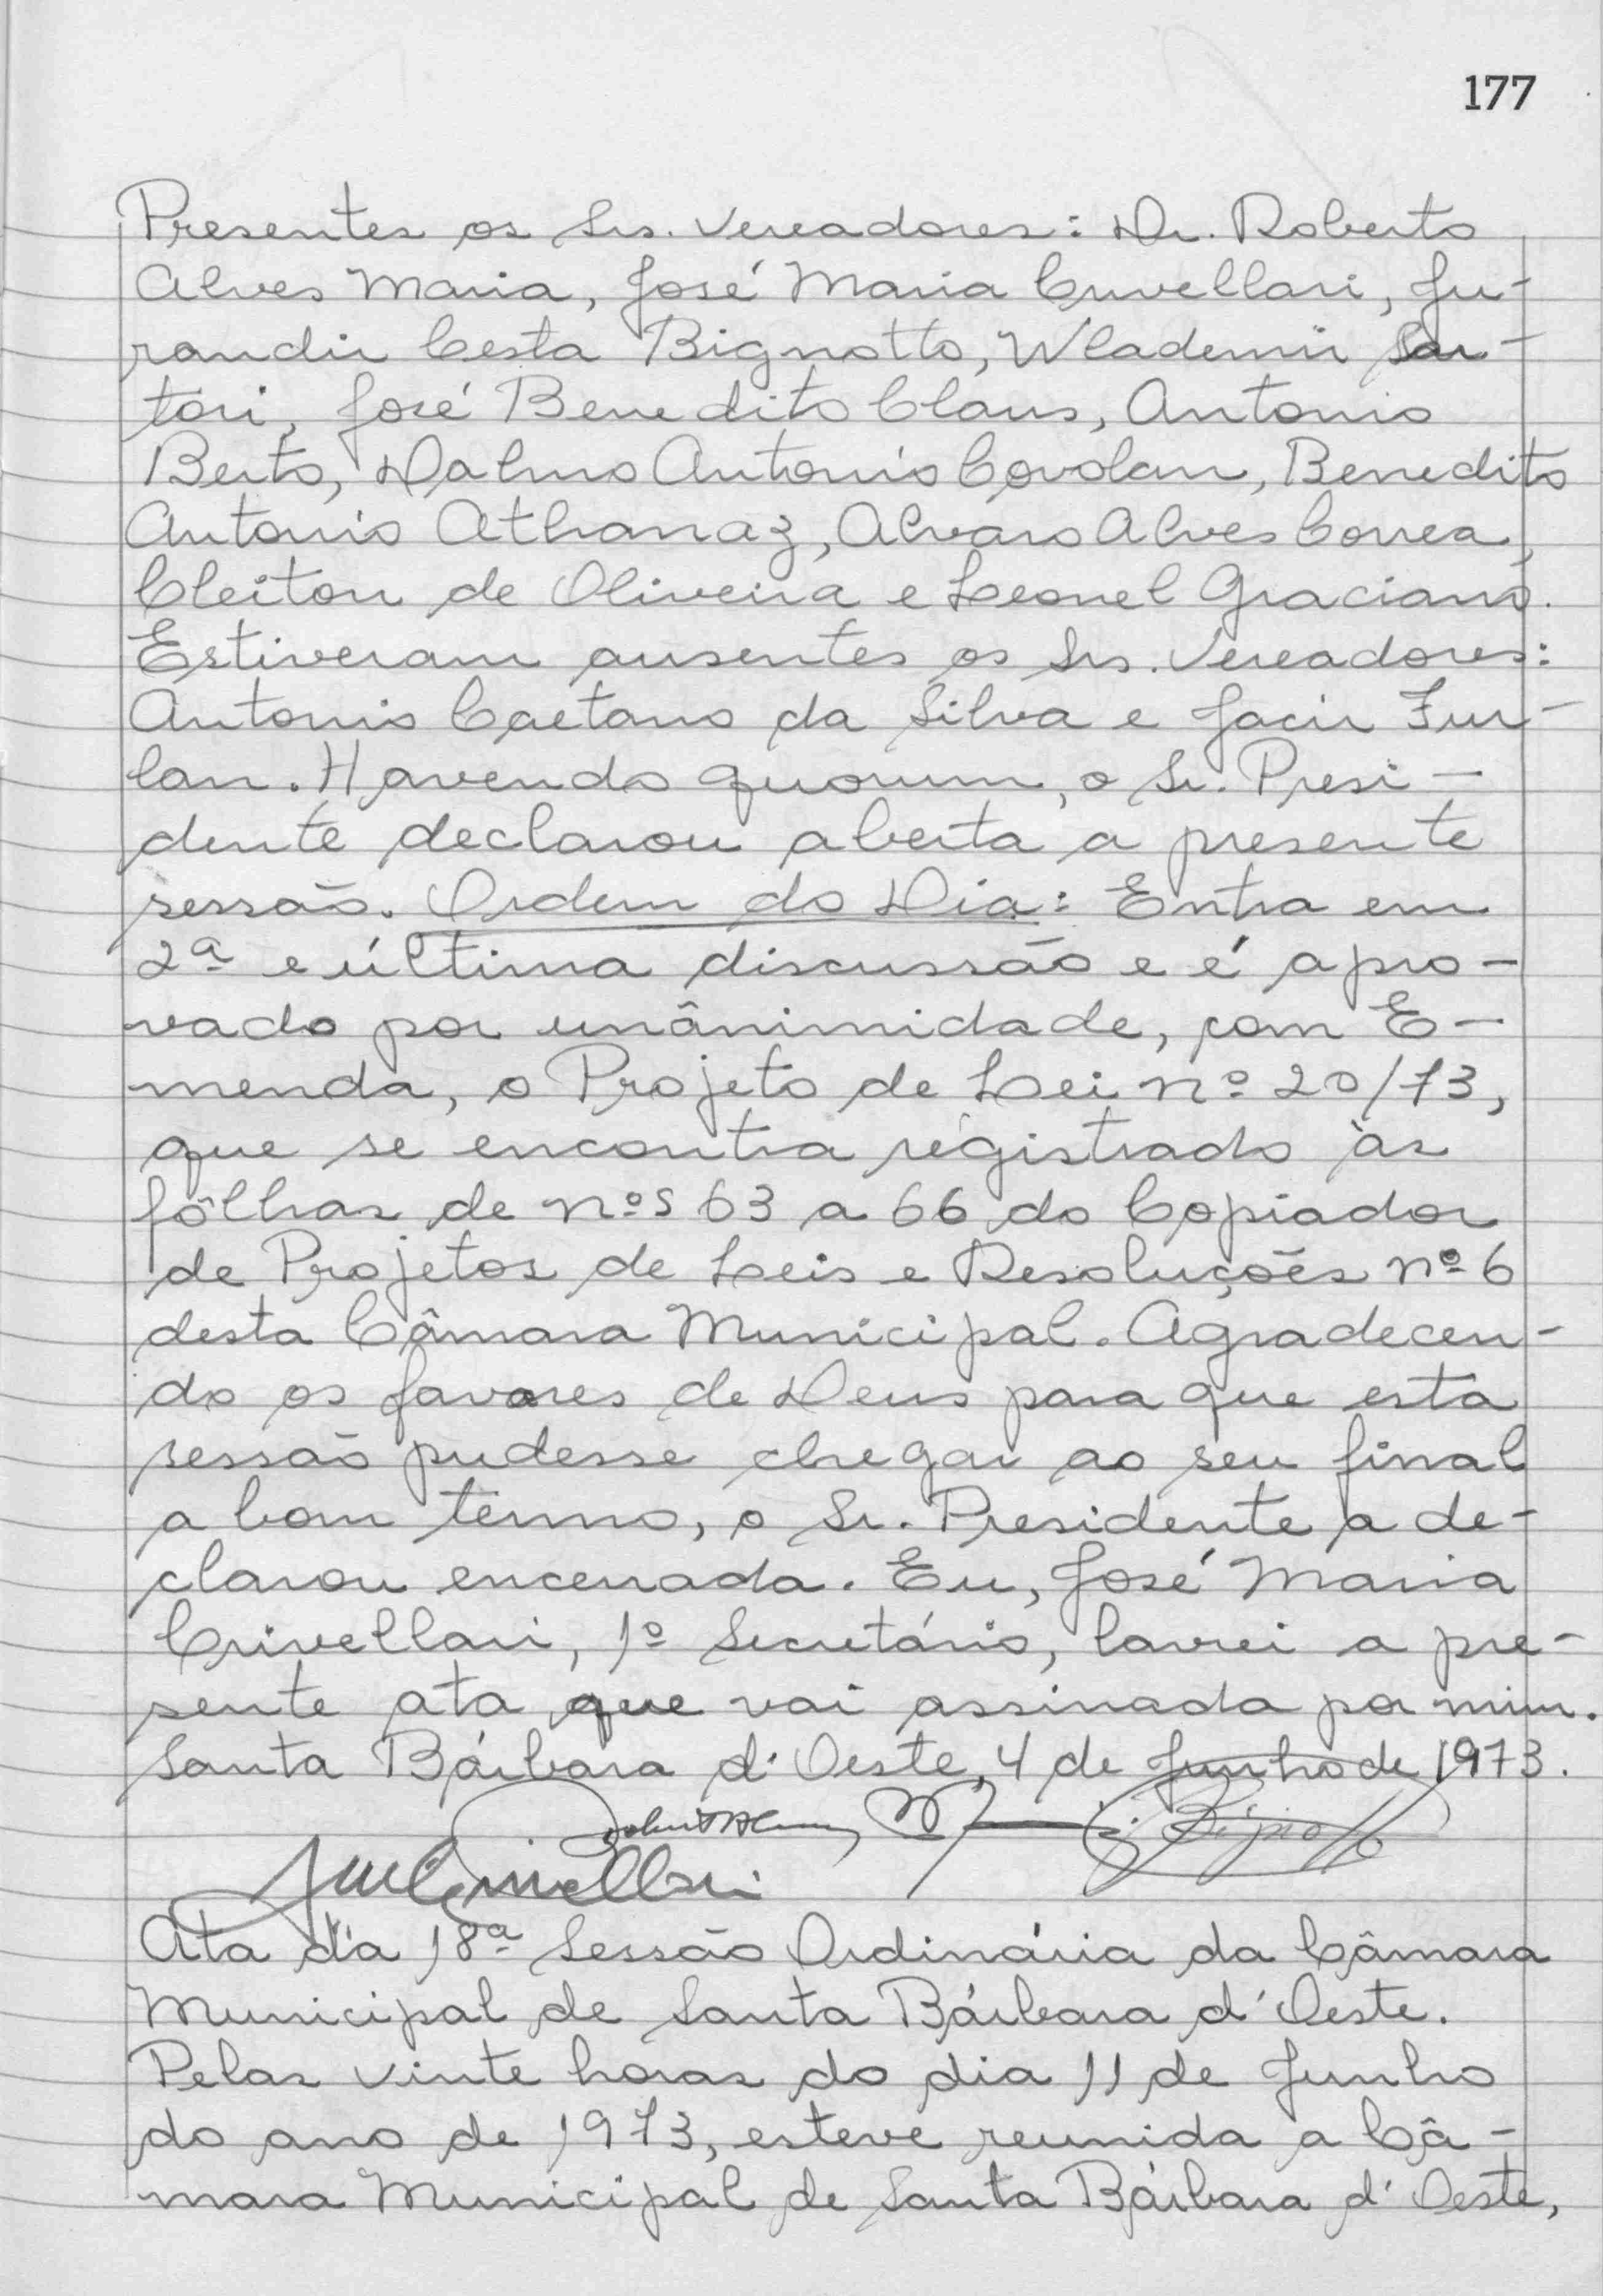 177
Presentes os Srs. Vereadores: Dr. Roberto
Alves Maria, José Maria Cruvellari, Ju-
randir Cesta Bignotto, Wlademir Sar-
tori, José Benedito Claus, Antonio
Berto, Dalmo Antonio Covolan, Benedito
Antonio Athanaz, Alvaro Alves Correa,
Cleiton de Oliveira e Leonel Graciano.
Estiveram ausentes os Srs. Vereadores:
Antonio Caetano da Silva e Jacir Fur-
lan. Havendo quorum, o Sr. Presi-
dente declarou aberta a presente
sessão. Ordem do Dia: Entra em
2ª e última discussão e é apro-
vado por unânimidade, com E-
menda, o Projeto de Lei nº 20/73,
que se encontra registrado às
fôlhas de nºs 63 a 66 do Copiador
de Projetos de Leis e Resoluções nº 6
desta Câmara Municipal. Agradecen-
do os favores de Deus para que esta
sessão pudesse chegar ao seu final
a bom termo, o Sr. Presidente a de-
clarou encerrada. Eu, José Maria
Crivellari, 1º Secretário, lavrei a pre-
sente ata que vai assinada por mim.
Santa Bárbara d'Oeste, 4 de Junho de 1973.
Ata da 18ª Sessão Ordinária da Câmara
Municipal de Santa Bárbara d'Oeste.
Pelas vinte horas do dia 11 de Junho
do ano de 1973, esteve reunida a Câ-
mara Municipal de Santa Bárbara d'Oeste,